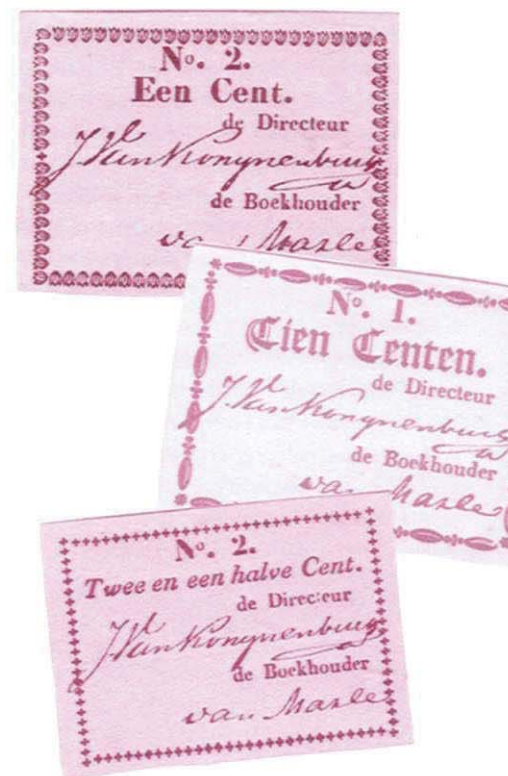 No. 2.
Een Cent.
de Directeur
J Van Konynenburg
de Boekhouder
van Marle
No. 1.
Tien Centen.
de Directeur
J Van Konynenburg
de Boekhouder
van Marle
No. 2.
Twee en een halve Cent.
de Directeur
J Van Konynenburg
de Boekhouder
van Marle